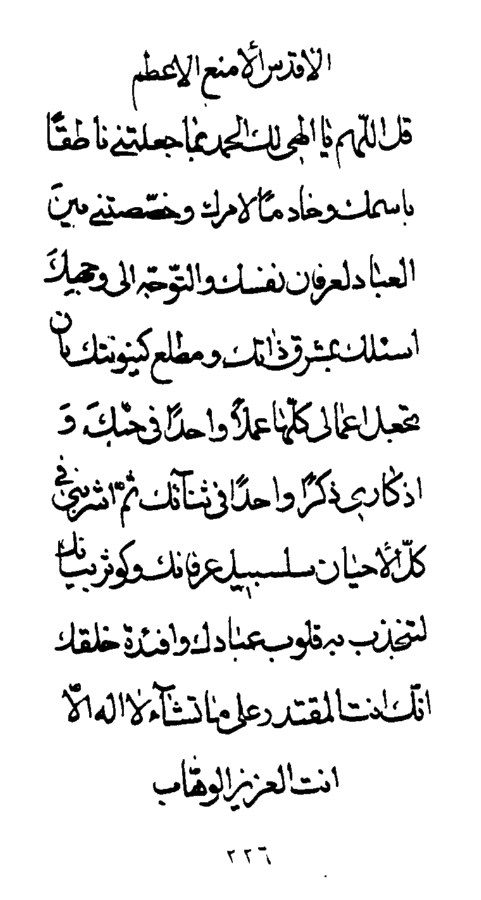 الاقدس الامنع الاعظم
قل اللّهم يا الهی لك الحمد بما جعلتنی ناطقاً
باسمك و خادماً لامرك و خصّصتنی بين
العباد لعرفان نفسك و التّوجّه الی وجهك
اسئلك بمشرق ذاتك و مطلع كينونتك بان
تجعل اعمالی كلّها عملاً واحداً فی حبّك و
اذكاری ذكراً واحداً فی ثنآئك ثمّ اشربنی فی
كلّ الاحيان سلسبيل عرفانك و كوثر بيانك
لتنجذب به قلوب عبادك و افئدة خلقك
انّك انت المقتدر علی ما تشآء لا اله الّا
انت العزيز الوهّاب
٢٢٦